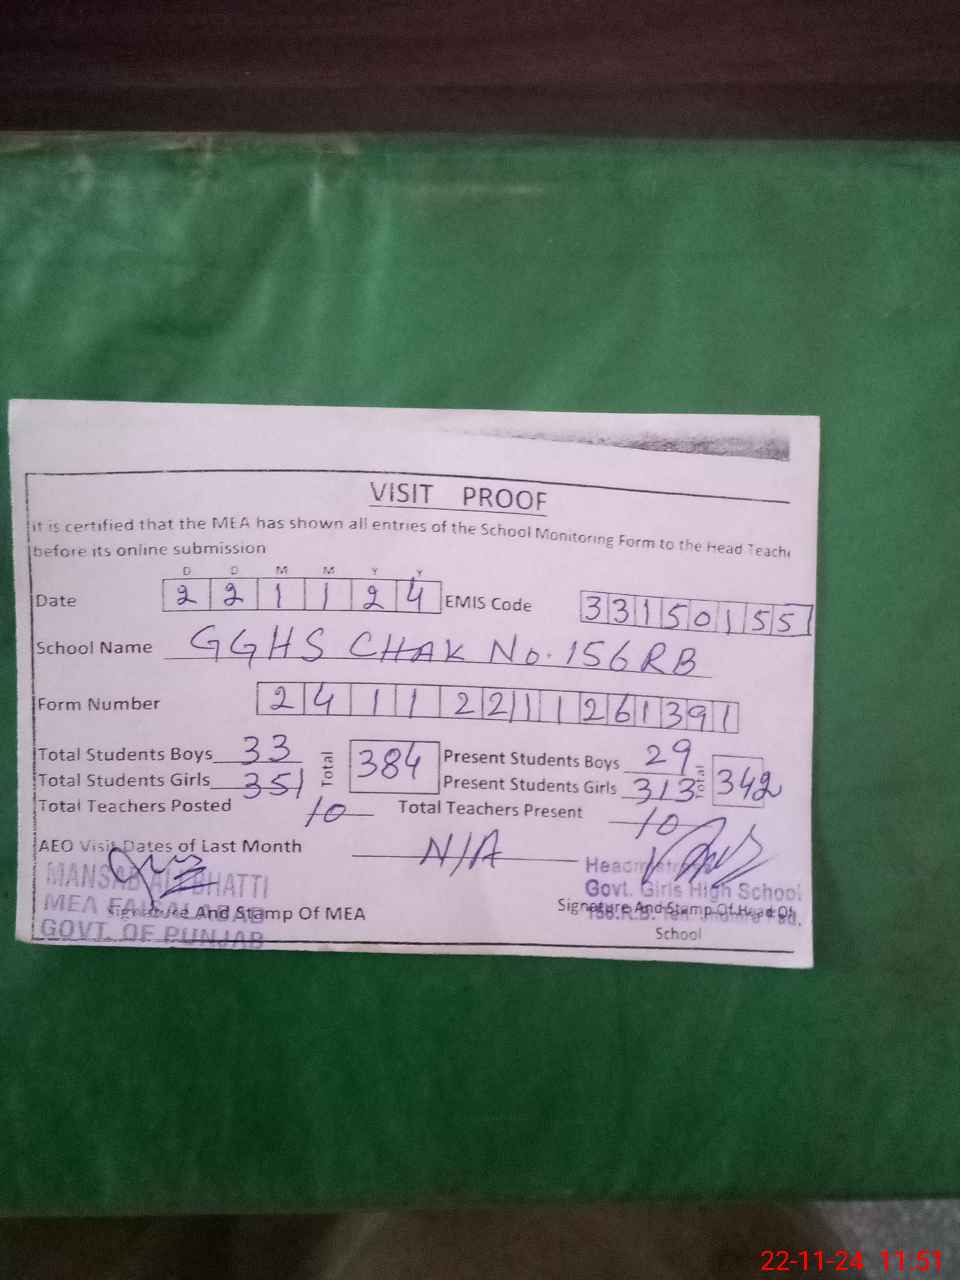 VISIT PROOF
it is certified that the MEA has shown all entries of the School Monitoring Form to the Head Teache
before its online submission
D D M M Y Y
Date 2 2 1 1 2 4 EMIS Code 3 3 1 5 0 1 5 5
School Name GGHS CHAK No. 156RB
Form Number 2 4 1 1 2 2 1 1 1 2 6 1 3 9 1
Total Students Boys 33 Total 384 Present Students Boys 29 342
Total Students Girls 351 Present Students Girls 313
Total Teachers Posted 10 Total Teachers Present 10
AEO Visit Dates of Last Month N/A
MANSAB ALI BHATTI
MEA FAISALABAD
GOVT. OF PUNJAB
Signature And Stamp Of MEA
Headmistress
Govt. Girls High School
156.R.B.
Signature And Stamp Of Head Of
School
22-11-24 11:51